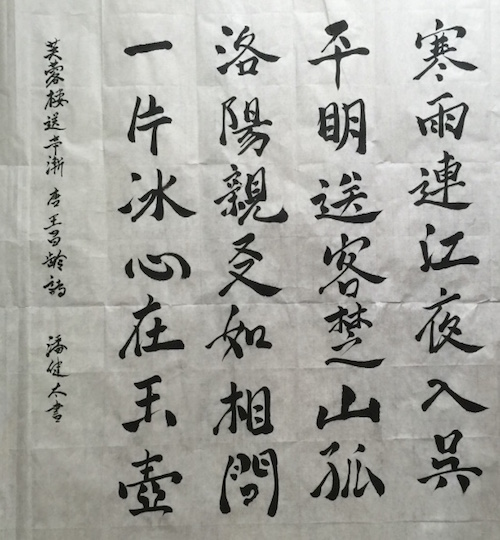 寒雨連江夜入吳
平明送客楚山孤
洛陽親友如相問
一片冰心在玉壺
芙蓉楼送辛漸 唐王昌齡詩 潘健太書